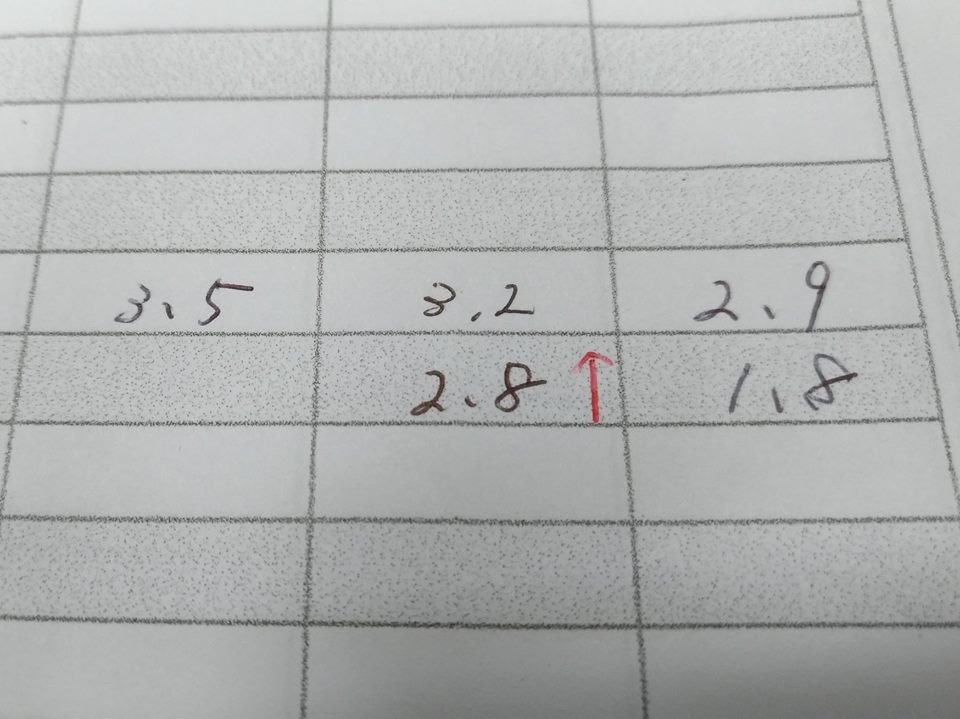 3.5 3.2 2.9
2.8 ↑ 1.8